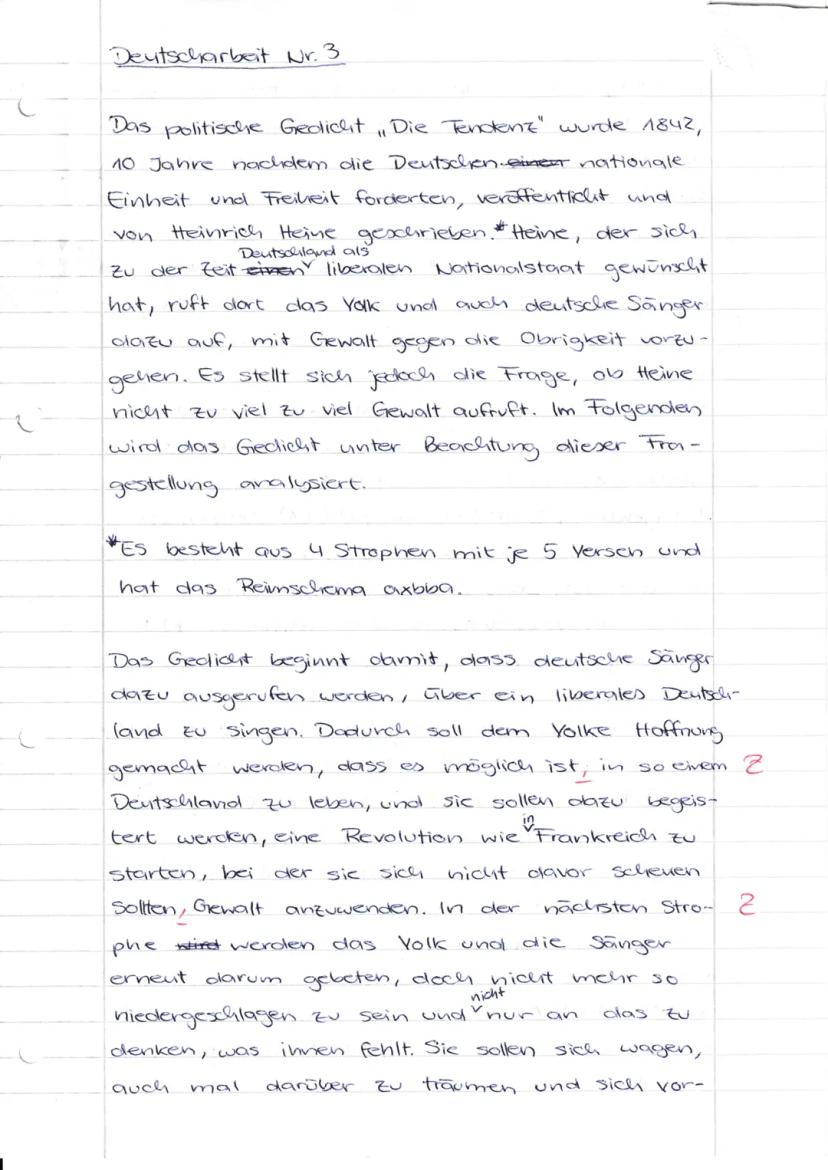 Deutscharbeit Nr. 3
Das politische Gedicht „Die Tendenz" wurde 1842,
10 Jahre nachdem die Deutschen einen nationale
Einheit und Freiheit forderten, veröffentlicht und
von Heinrich Heine geschrieben.* Heine, der sich
Deutschland als
zu der Zeit einen liberalen Nationalstaat gewünscht
hat, ruft dort das Volk und auch deutsche Sänger
dazu auf, mit Gewalt gegen die Obrigkeit vorzu-
gehen. Es stellt sich jedoch die Frage, ob Heine
nicht zu viel zu viel Gewalt aufruft. Im Folgenden
wird das Gedicht unter Beachtung dieser Fra-
gestellung analysiert.
*Es besteht aus 4 Strophen mit je 5 Versen und
hat das Reimschema axbba.
Das Gedicht beginnt damit, dass deutsche Sänger
dazu ausgerufen werden, über ein liberales Deutsch-
land zu singen. Dadurch soll dem Volke Hoffnung
gemacht werden, dass es möglich ist, in so einem Z
Deutschland zu leben, und sie sollen dazu begeis-
in
tert werden, eine Revolution wie Frankreich zu
starten, bei der sie sich nicht davor scheuen
sollten, Gewalt anzuwenden. In der nächsten Stro- Z
phe wird werden das Volk und die Sänger
erneut darum gebeten, doch nicht mehr so
nicht
niedergeschlagen zu sein und nur an das zu
denken, was ihnen fehlt. Sie sollen sich wagen,
auch mal darüber zu träumen und sich vor-